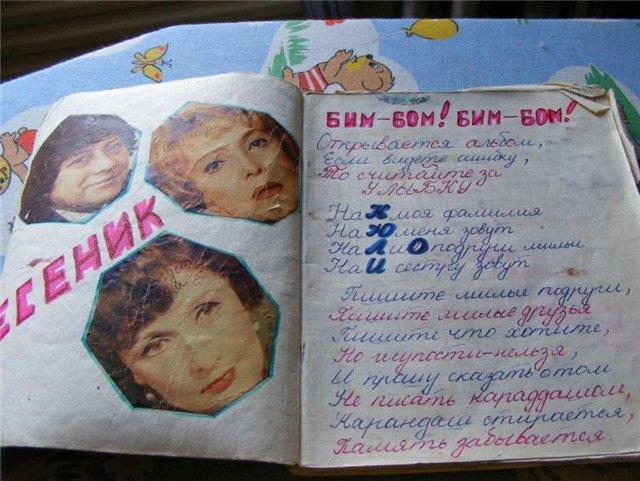 ЕСЕНИК
БИМ-БОМ! БИМ-БОМ!
Открывается альбом,
Если видете ошибку,
То считайте за
УЛЫБКУ
На К моя фамилия
На Ю меня зовут
На Л и О подруги милые
На И сестру зовут
Пишите милые подруги,
Пишите милые друзья
Пишите что хотите,
Но глупости-нельзя,
И прашу сказать отом
Не писать караддашом,
Карандаш стирается,
Память забывается.